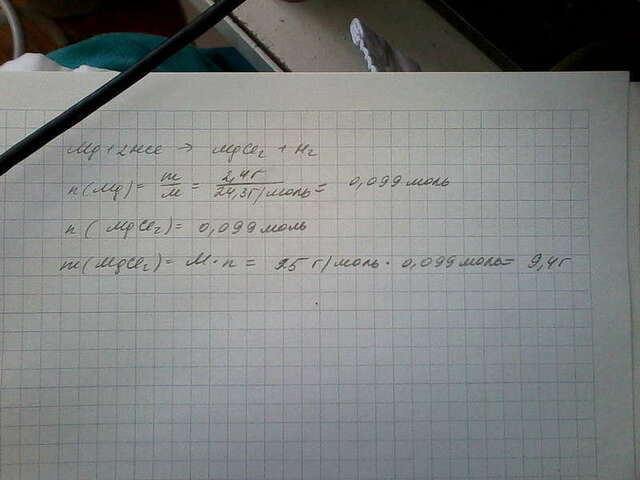 Mg + 2HCl → MgCl₂ + H₂
n(Mg) = m/M = 2,4г/24,3г/моль = 0,099 моль
n(MgCl₂) = 0,099 моль
m(MgCl₂) = M·n = 95 г/моль · 0,099 моль = 9,4г